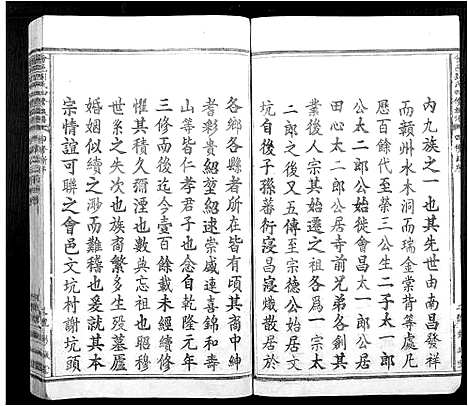 內九族之一也其先世由南昌發祥
而贛州水木洞而瑞金棠背等處凡
歷百餘代至榮三公生二子太一郎
公太二郎公始徙會昌太一郎公居
田心太二郎公居寺前兄弟各創其
業後人宗其始遷之祖各爲一宗太
二郎之後又五傳至宗德公始居文
坑自後子孫蕃衍寖昌寖熾散居於
各鄉各縣者所在皆有頃其裔中紳
耆彰貴紹堃紹速崇威連喜錦和壽
山等皆仁孝君子也念自乾隆元年
三修而後迄今壹百餘載未經續修
懼其積久彌湮也數典忘祖也昭穆
世系之失次也族裔繁多生歿墓廬
婚姻似續之渺而難稽也爰本其敦
宗情誼可聯之會邑文坑村謝坑頭